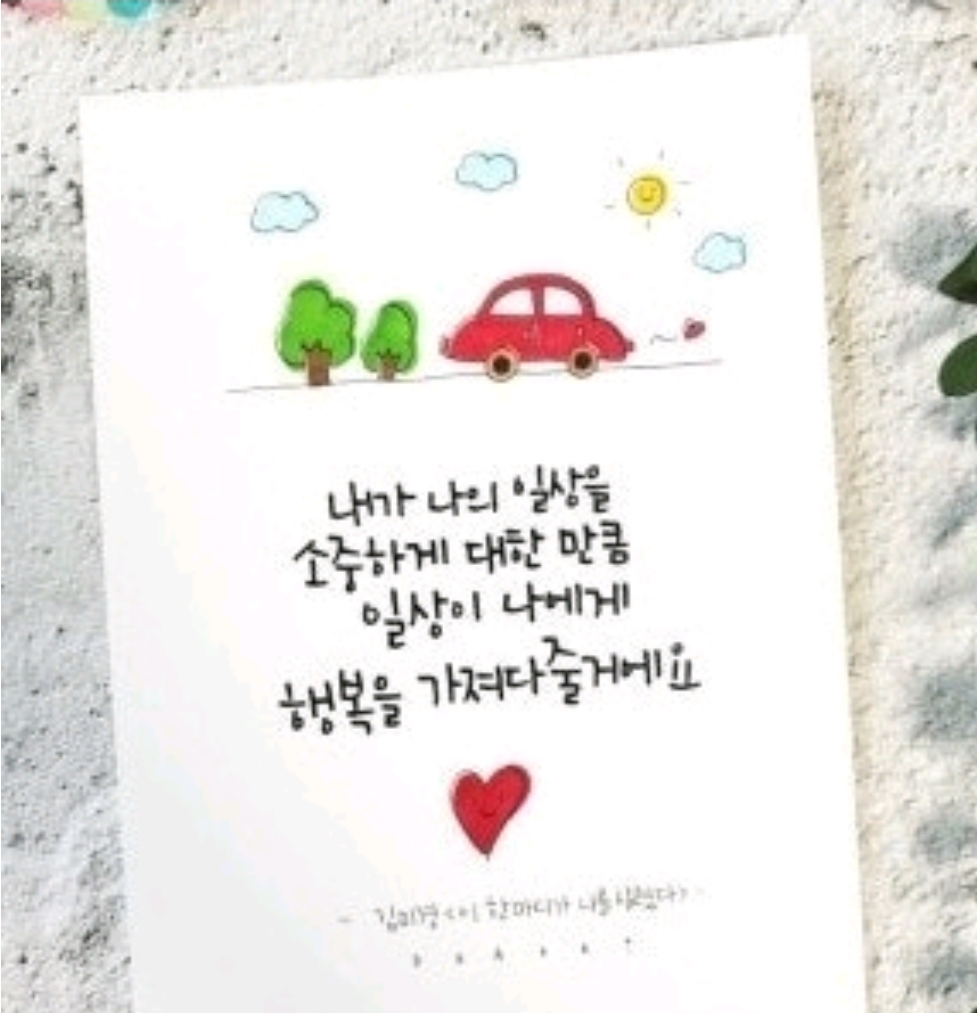 내가 나의 일상을
소중하게 대한 만큼
일상이 나에게
행복을 가져다줄거에요
- 김미경 <이 한마디가 나를 살렸다> -